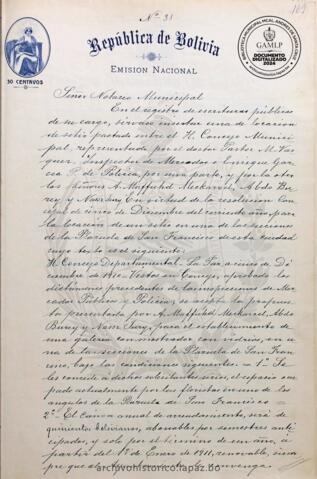 Nº 38
169
República de Bolivia
EMISION NACIONAL
50 CENTAVOS
GAMLP
DOCUMENTO
DIGITALIZADO
2024
Señor Notario Municipal
En el registro de escrituras públicas
de su cargo, sírvase insertar una de locacion
de sitio pactada entre el H. Concejo Munici
pal, representado por el doctor Pastor M.
Inspector de Mercados i Enrique Gar
P. de Policía, por una parte, y por la otra
los señores A. Maffuhd Meckarcel, Abdo
y Nasr Jury. En virtud de la resolucion Con
de cinco de Diciembre del corriente año, para
la locacion de un sitio en una de las secciones
de la Plazuela de San Francisco de esta ciudad
cuyo tenor es el siguiente:
H. Concejo Departamental. La Paz, a cinco de Di
ciembre de 1910. Vistos en Concejo, aprobados los
dictámenes precedentes de las inspecciones de Mer
cados Públicos y Policía, se acepta la propues
ta presentada por A. Maffuhd Meckarcel, Abdo
y Nasr Jury, para el establecimiento de
una galería con mostrador con vidrios, en u
na de las secciones de la Plazuela de San Fran
cisco, bajo las condiciones siguientes: — 1ª Se
les concede á dichos solicitantes el espacio ocu
pado actualmente por las floristas en uno de los
angulos de la Plazuela de San Francisco =
2ª El canon anual de arrendamiento, será de
quinientos bolivianos, abonables por semestres anti
cipados, y solo por el término de un año, á
partir del 1º de Enero de 1911, renovable, siem
pre que al convenga.
archivohistoricolapaz.bo